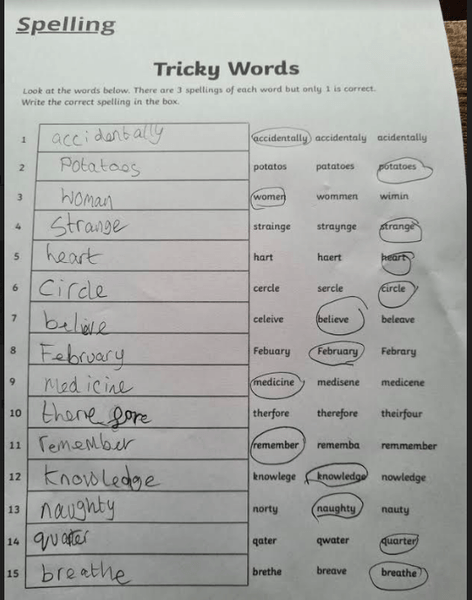 Spelling
Tricky Words
Look at the words below. There are 3 spellings of each word but only 1 is correct.
Write the correct spelling in the box.
1 accidentally accidentally accidentaly acidentally
2 Potatoes potatos patatoes potatoes
3 Woman women wommen wimin
4 Strange strainge straynge strange
5 heart hart haert heart
6 Circle cercle sercle circle
7 belive celeive believe beleave
8 February Febuary February Febrary
9 Medicine medicine medisene medicene
10 therfore therefore theirfour
11 remember remember rememba remmember
12 Knowledge knowlege knowledge nowledge
13 naughty norty naughty nauty
14 quarter qater qwater quarter
15 breathe brethe breave breathe